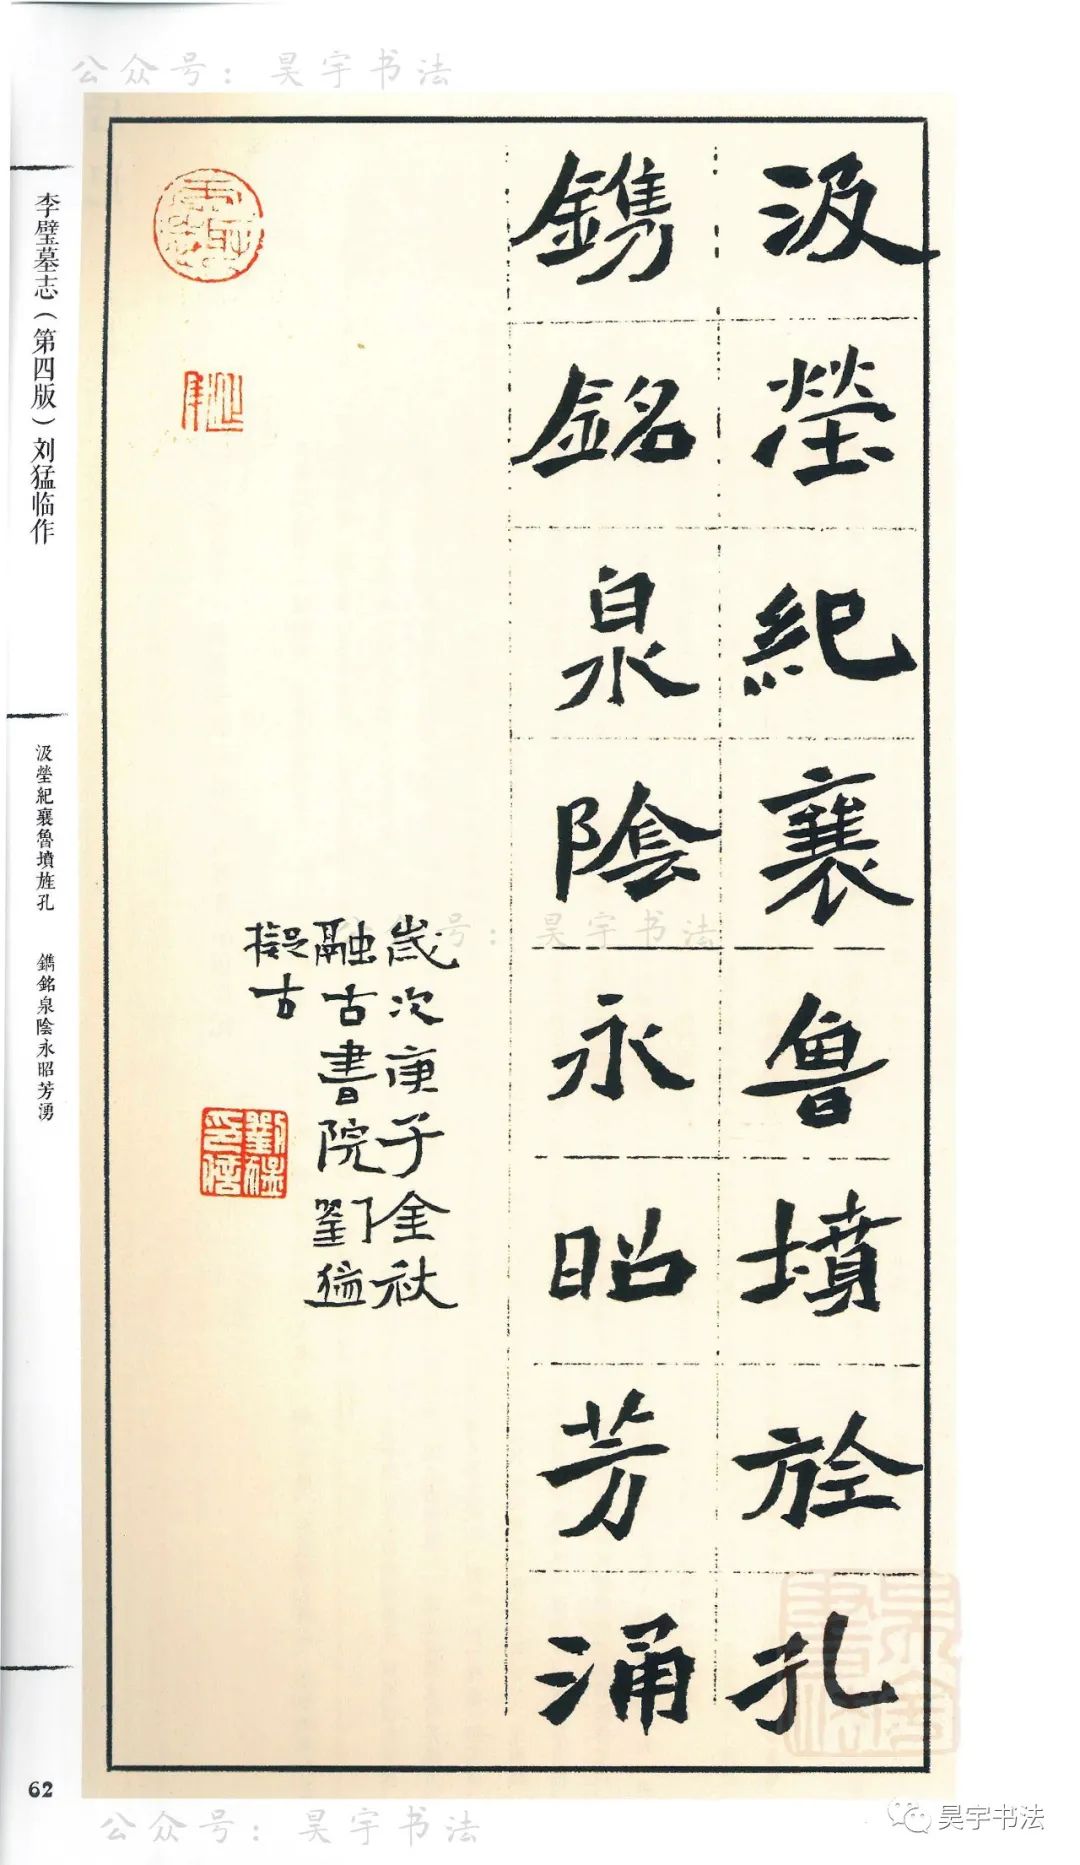 公众号：昊宇书法
汲塋紀襄魯墳旌孔
鐫銘泉陰永昭芳涌
歲次庚子金秋
融古書院劉猛
擬古
李璧墓志（第四版）刘猛临作
汲塋紀襄魯墳旌孔 鐫銘泉陰永昭芳湧
62
公众号：昊宇书法
公众号：昊宇书法
昊宇书法